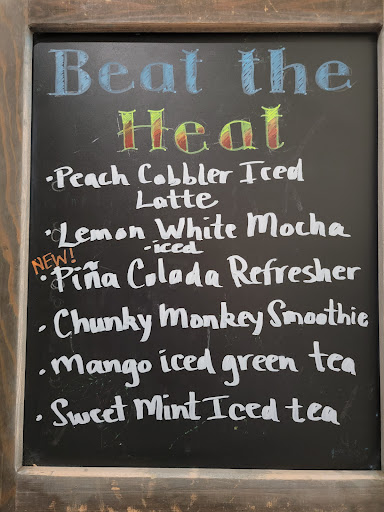 Beat the
Heat
·Peach Cobbler Iced
Latte
·Lemon White Mocha
-iced
NEW!
·Piña Colada Refresher
·Chunky Monkey Smoothie
·Mango iced green tea
·Sweet Mint Iced tea